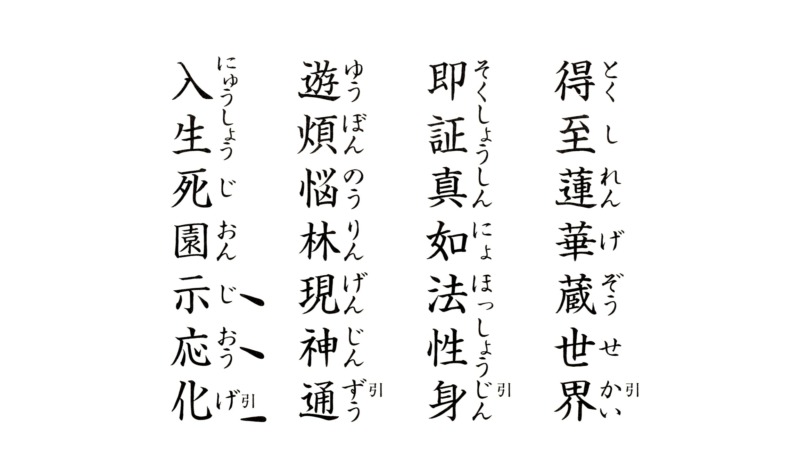 得至蓮華蔵世界
とくしれんげぞうせかい引
即証真如法性身
そくしょうしんにょほっしょうじん引
遊煩悩林現神通
ゆうぼんのうりんげんじんずう引
入生死園示応化
にゅうしょうじおんじおうげ引